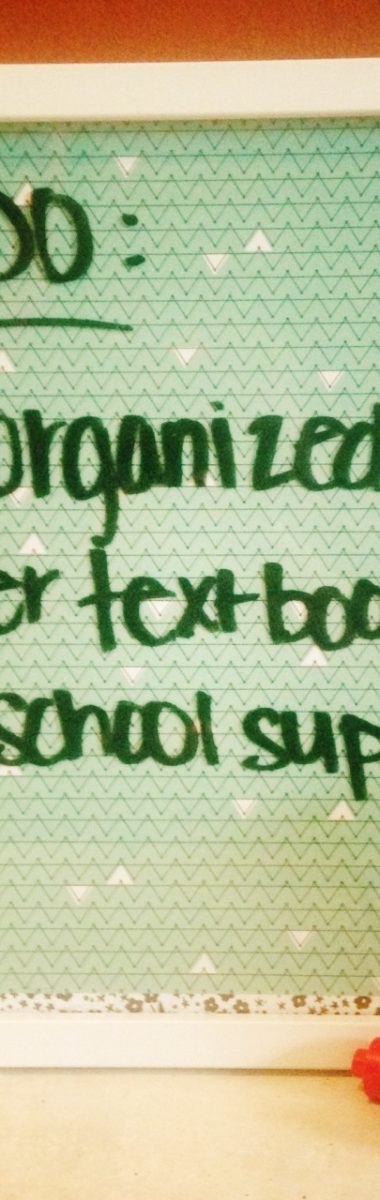 DO:
organized
er textboo
school sup